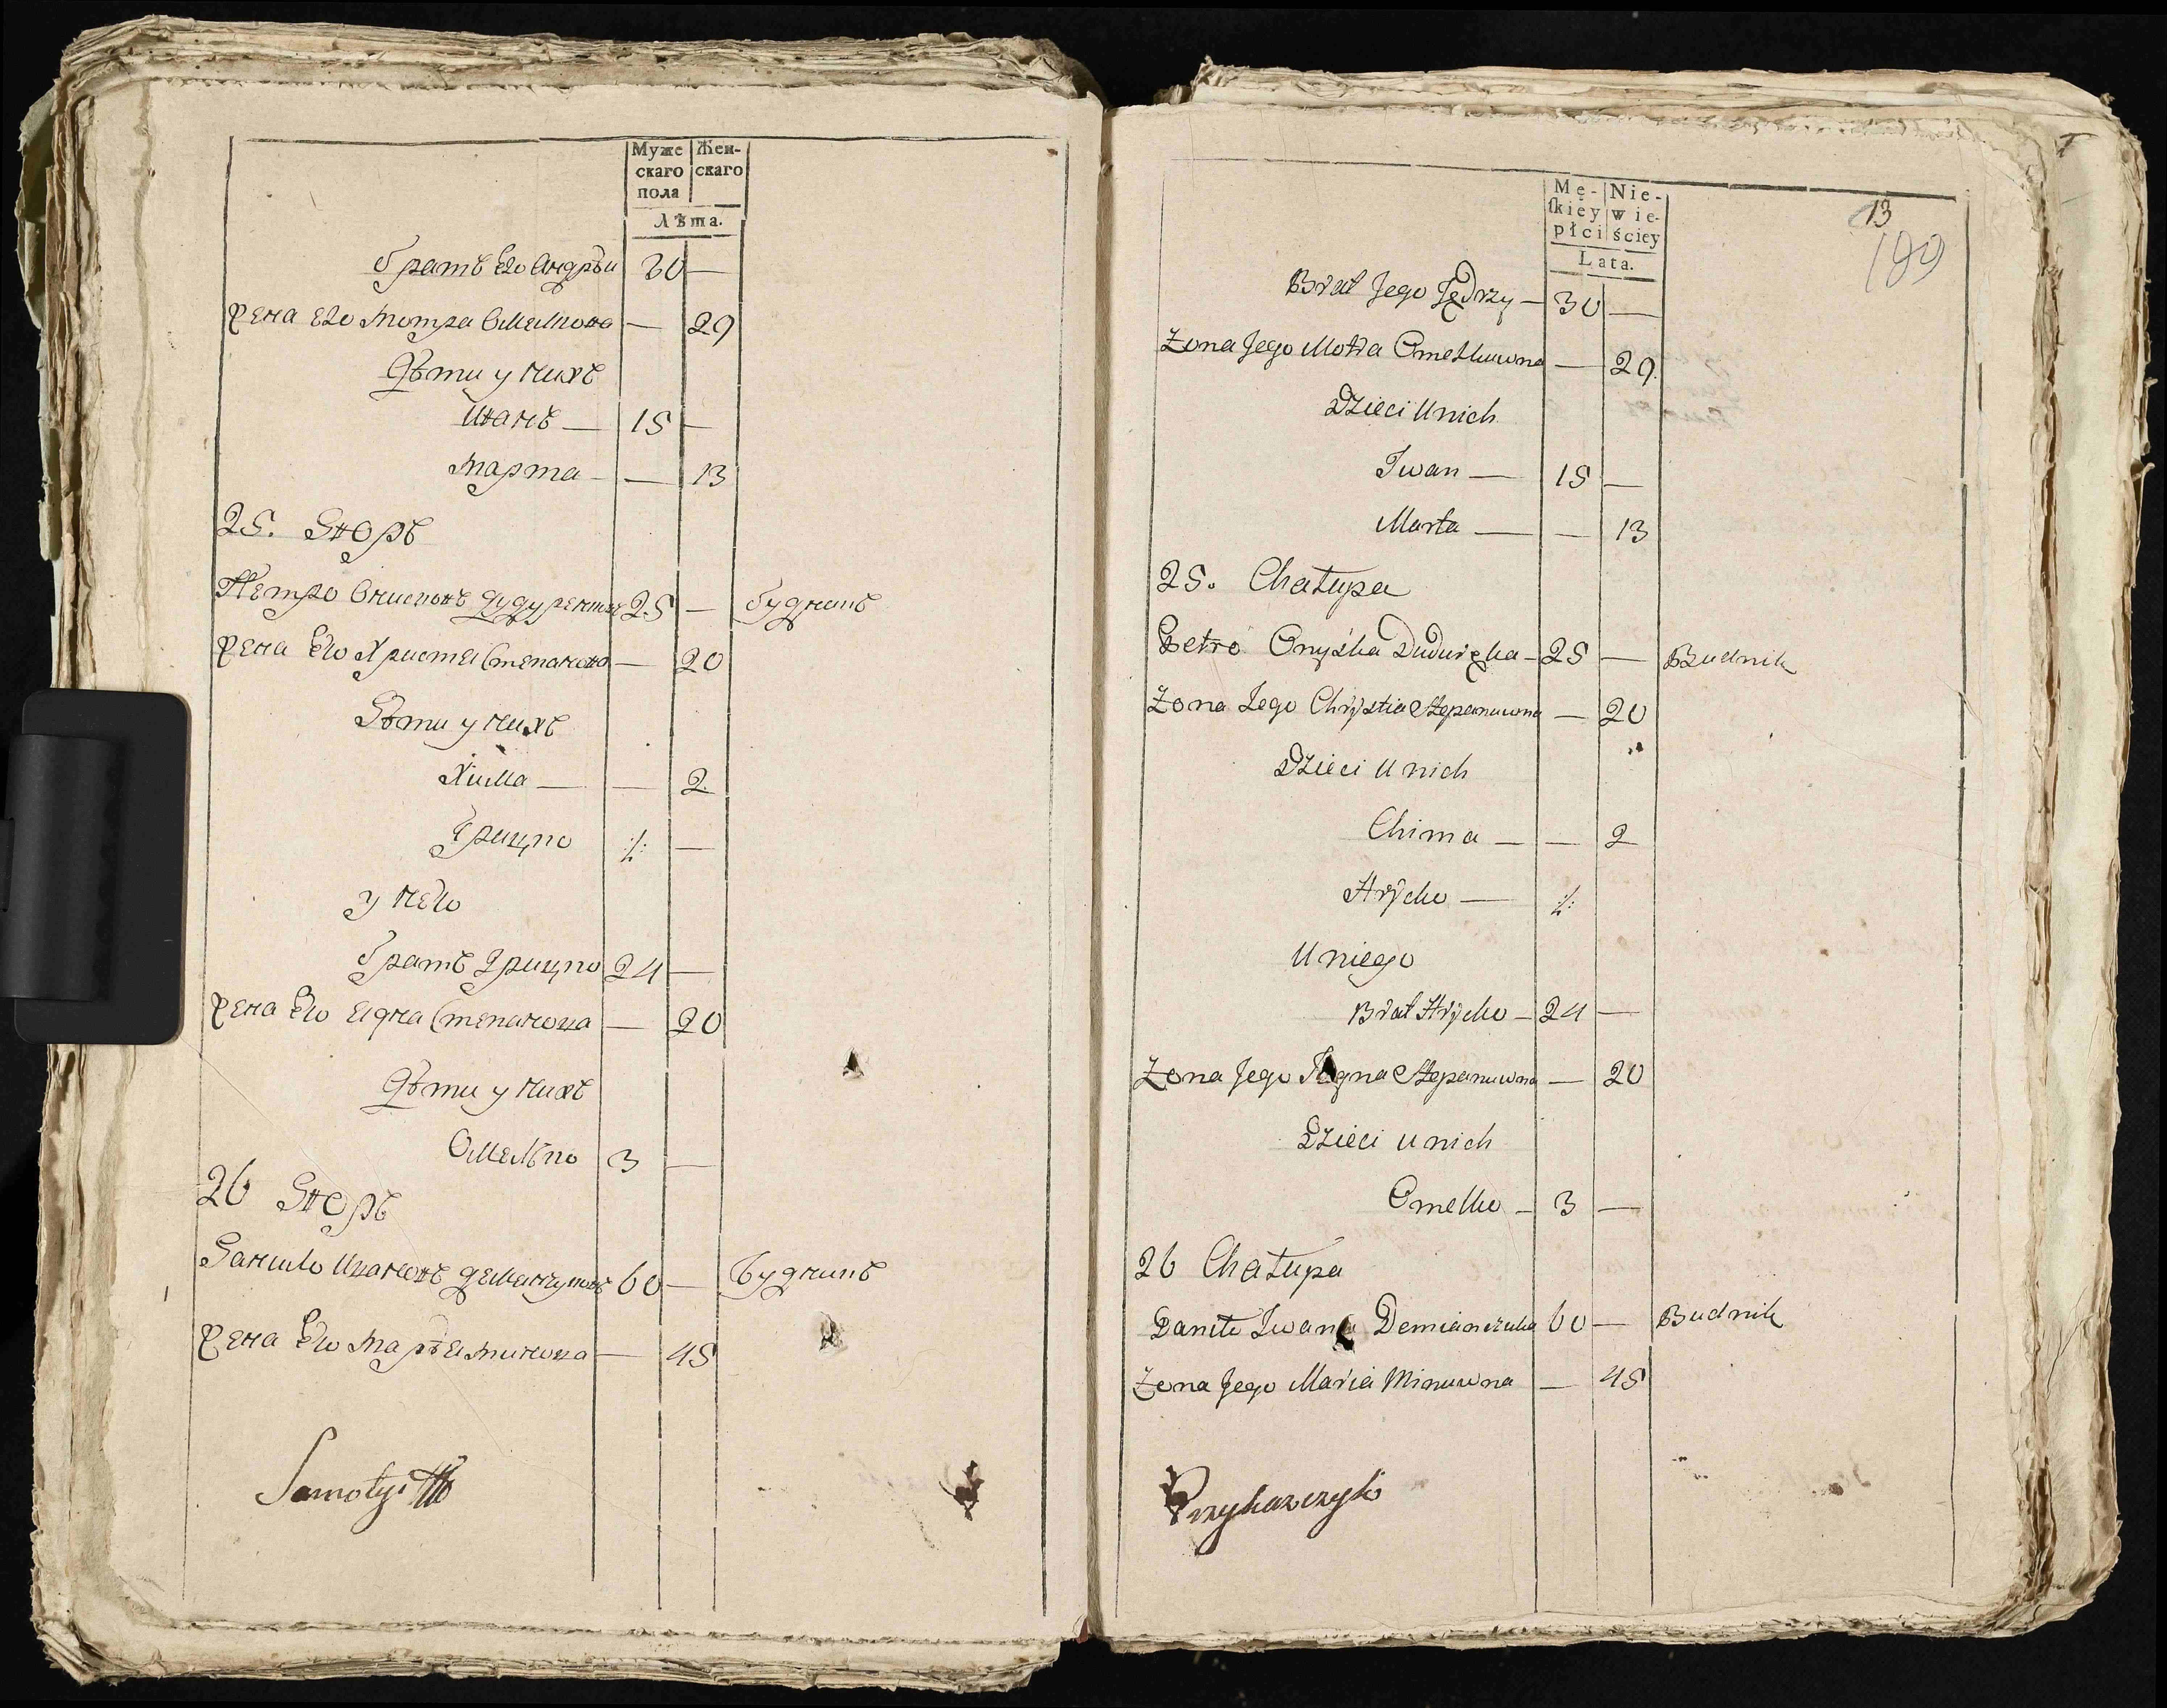 Муже скаго пола Жен- скаго
Лѣта.
братъ Его Андрѣи 30 —
Жена Его Мотра Омелкова — 29
Дѣти у нихъ
Иванъ — 15 —
Марта — — 13
25. Дворъ
Петро Онисковъ Дудуренковъ 25 — будникъ
Жена Его Христя Степанова — 20
Дѣти у нихъ
Хима — — 2
Грицко ./. —
у него
братъ Грицко 24 —
Жена Его Ягна Степанова — 20
Дѣти у нихъ
Омелько 3 —
26 Дворъ
Данило Ивановъ Деманчуковъ 60 — будникъ
Жена Его Маръя Минова — 45
13
189
Mę- skiey płci Nie- wie- ściey
Lata.
Brat Jego Jędrzy — 30 —
Żona Jego Motra Omelkuwna — 29.
Dzieci u nich
Iwan — 15 —
Marta — — 13
25. Chałupa
Petro Onyśka Duduręka — 25 — Budnik
Żona Jego Chrystia Stepanuwna — 20
Dzieci u nich
Chima — — 2
Hryćko — ./.
U niego
Brat Hryćko — 24 —
Żona Jego Jagna Stepanuwna — 20
Dzieci u nich
Omelko — 3 —
26 Chałupa
Daniło Iwana Demianczuka 60 — Budnik
Żona Jego Maria Minuwna — 45
Przykazczyk